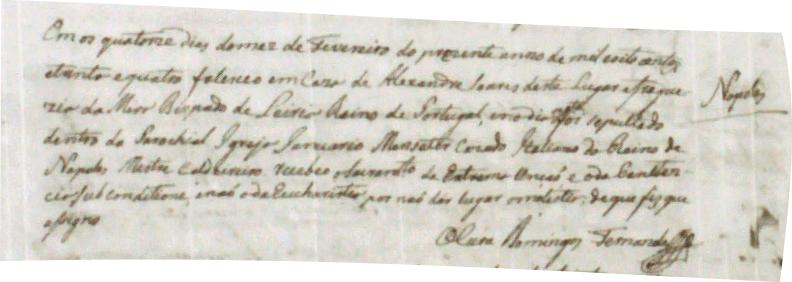 Em os quatorze dias do mez de Fevereiro do prezente anno de mil oito centos
e trinta e quatro faleceo em Caza de Alexandre Soares deste Lugar e fregue
zia da Marr Bispado de Leiria Reino de Portugal, e no dia foi sepultado
dentro da Parochial Igreja Januario Cazado Italiano do Reino de
Napoles Mestre Caldeireiro. recebeo o Sacramto da Extrema Unçaõ e o da Peniten
cia sub conditione, e naõ o da Eucharistia, por naõ dar lugar a molestia; de que fiz que
assigno
O Cura Domingos Fernandes
Napoles